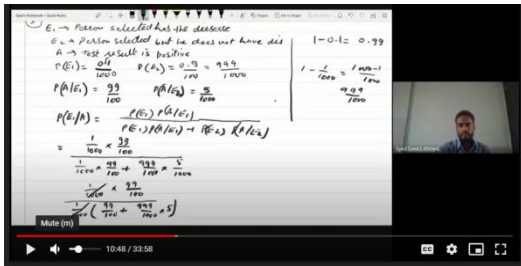 Syed's Notebook - Quick Note
E₁ → Person selected has the disease
E₂ → Person selected but he does not have dis
A → test result is positive
P(E₁) = 0.1/100 P(E₂) = 0.9/100 = 999/1000
P(A/E₁) = 99/100 P(A/E₂) = 5/1000
P(E₁/A) = P(E₁) P(A/E₁) / P(E₁) P(A/E₁) + P(E₂) P(A/E₂)
= 1/1000 × 99/100
1/1000 × 99/100 + 999/1000 × 5/1000
1/1000 × 99/100
1/1000 ( 99/100 + 999/1000 × 5 )
1 - 0.1 = 0.99
1 - 1/1000 = 1000-1/1000
999/1000
Syed Saeed Ahmed
Mute (m)
10:48 / 33:58
CC